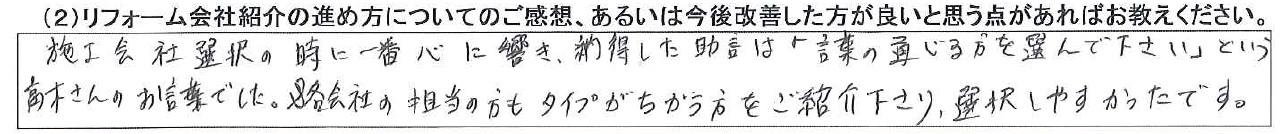 (2)リフォーム会社紹介の進め方についてのご感想、あるいは今後改善した方が良いと思う点があればお教えください。
施工会社選択の時に一番心に響き、納得した助言は「言葉の通じる方を選んで下さい」という
高木さんのお言葉でした。各会社の担当の方もタイプがちがう方をご紹介下さり、選択しやすかったです。